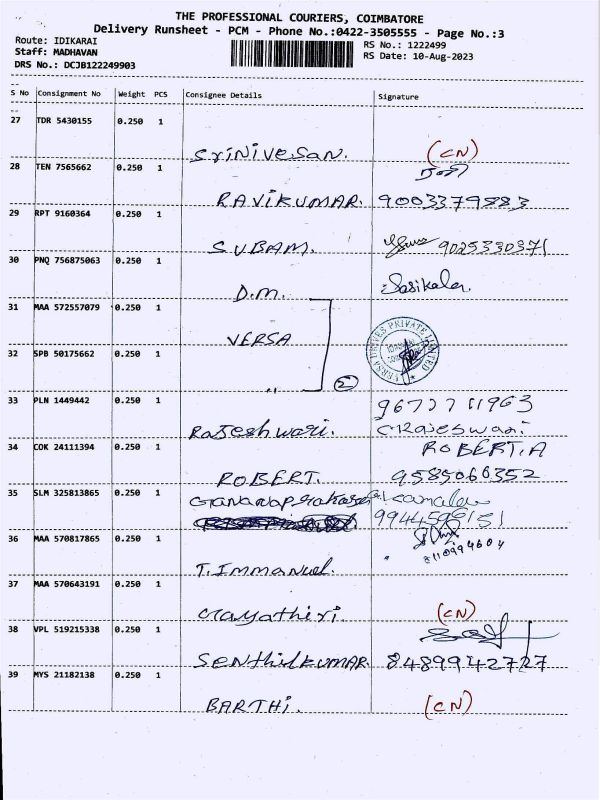 THE PROFESSIONAL COURIERS, COIMBATORE
Delivery Runsheet - PCM - Phone No.:0422-3505555 - Page No.:3
Route: IDIKARAI
Staff: MADHAVAN
DRS No.: DCJB122249903
RS No.: 1222499
RS Date: 10-Aug-2023
S No Consignment No Weight PCS Consignee Details Signature
27 TDR 5430155 0.250 1
Srinivesan. (CN)
28 TEN 7565662 0.250 1
RAVIKUMAR. 9003379883
29 RPT 9160364 0.250 1
SUBAM. 9025330371
30 PNQ 756875063 0.250 1
D.M. Sasikala.
31 MAA 572557079 0.250 1
VERSA
VERSA DRIVES PRIVATE LIMITED
32 SPB 50175662 0.250 1
,, 2
33 PLN 1449442 0.250 1
Rajeshwari. C Rajeswari
34 COK 24111394 0.250 1
ROBERT.A
ROBERT. 9585060352
35 SLM 325813865 0.250 1
36 MAA 570817865 0.250 1
T. Immanuel.
37 MAA 570643191 0.250 1
Gayathiri. (CN)
38 VPL 519215338 0.250 1
SENTHILKUMAR 8489942727
39 MYS 21182138 0.250 1
BARTHI. (CN)